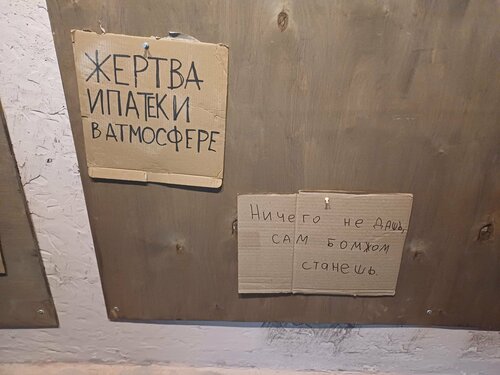 ЖЕРТВА
ИПАТЕКИ
В АТМОСФЕРЕ
Ничего не дашь,
сам бомжом
станешь